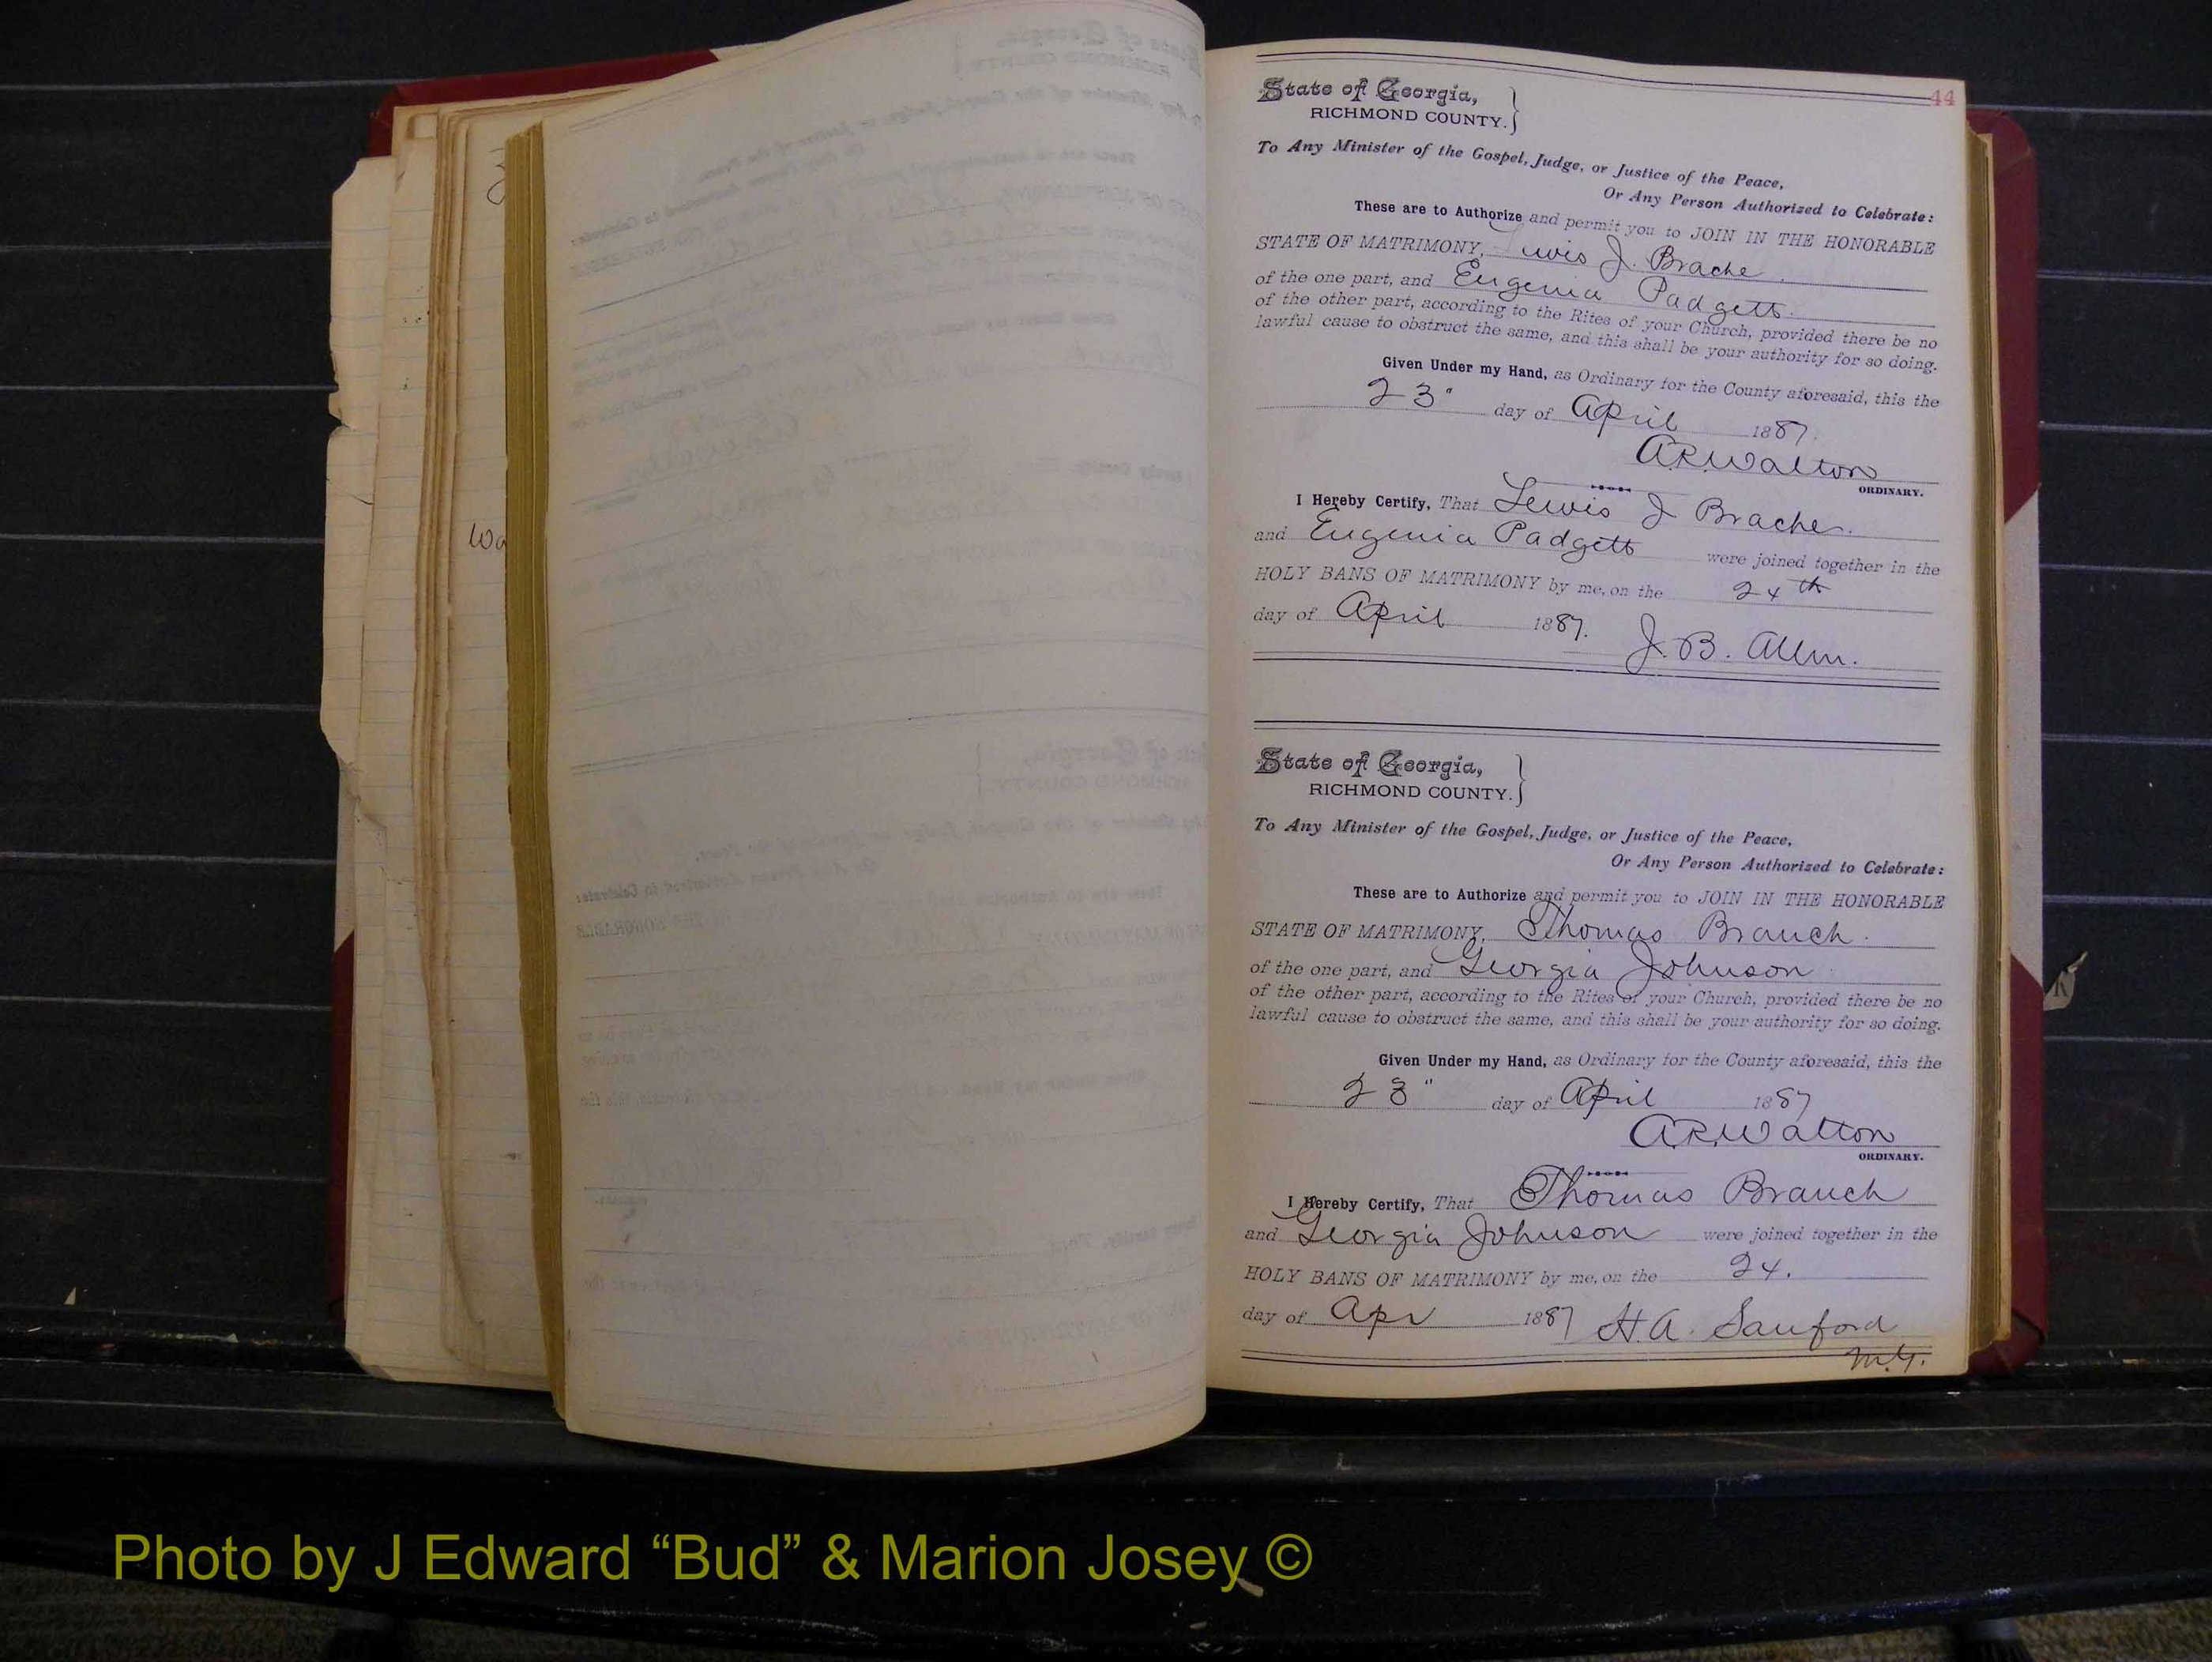 44
State of Georgia,
RICHMOND COUNTY. }
To Any Minister of the Gospel, Judge, or Justice of the Peace,
Or Any Person Authorized to Celebrate:
These are to Authorize and permit you to JOIN IN THE HONORABLE
STATE OF MATRIMONY, Lewis J. Brache
of the one part, and Eugenia Padgett.
of the other part, according to the Rites of your Church, provided there be no
lawful cause to obstruct the same, and this shall be your authority for so doing.
Given Under my Hand, as Ordinary for the County aforesaid, this the
23" day of April 1887.
A.R. Walton
ORDINARY.
I Hereby Certify, That Lewis J Brache.
and Eugenia Padgett were joined together in the
HOLY BANS OF MATRIMONY by me, on the 24th
day of April 1887.
J. B. Allen.
State of Georgia,
RICHMOND COUNTY. }
To Any Minister of the Gospel, Judge, or Justice of the Peace,
Or Any Person Authorized to Celebrate:
These are to Authorize and permit you to JOIN IN THE HONORABLE
STATE OF MATRIMONY, Thomas Branch.
of the one part, and Georgia Johnson
of the other part, according to the Rites of your Church, provided there be no
lawful cause to obstruct the same, and this shall be your authority for so doing.
Given Under my Hand, as Ordinary for the County aforesaid, this the
23" day of April 1887
A.R. Walton
ORDINARY.
I Hereby Certify, That Thomas Branch
and Georgia Johnson were joined together in the
HOLY BANS OF MATRIMONY by me, on the 24.
day of Apr 1887 H. A. Sanford
M.G.
Wa
Photo by J Edward “Bud” & Marion Josey ©